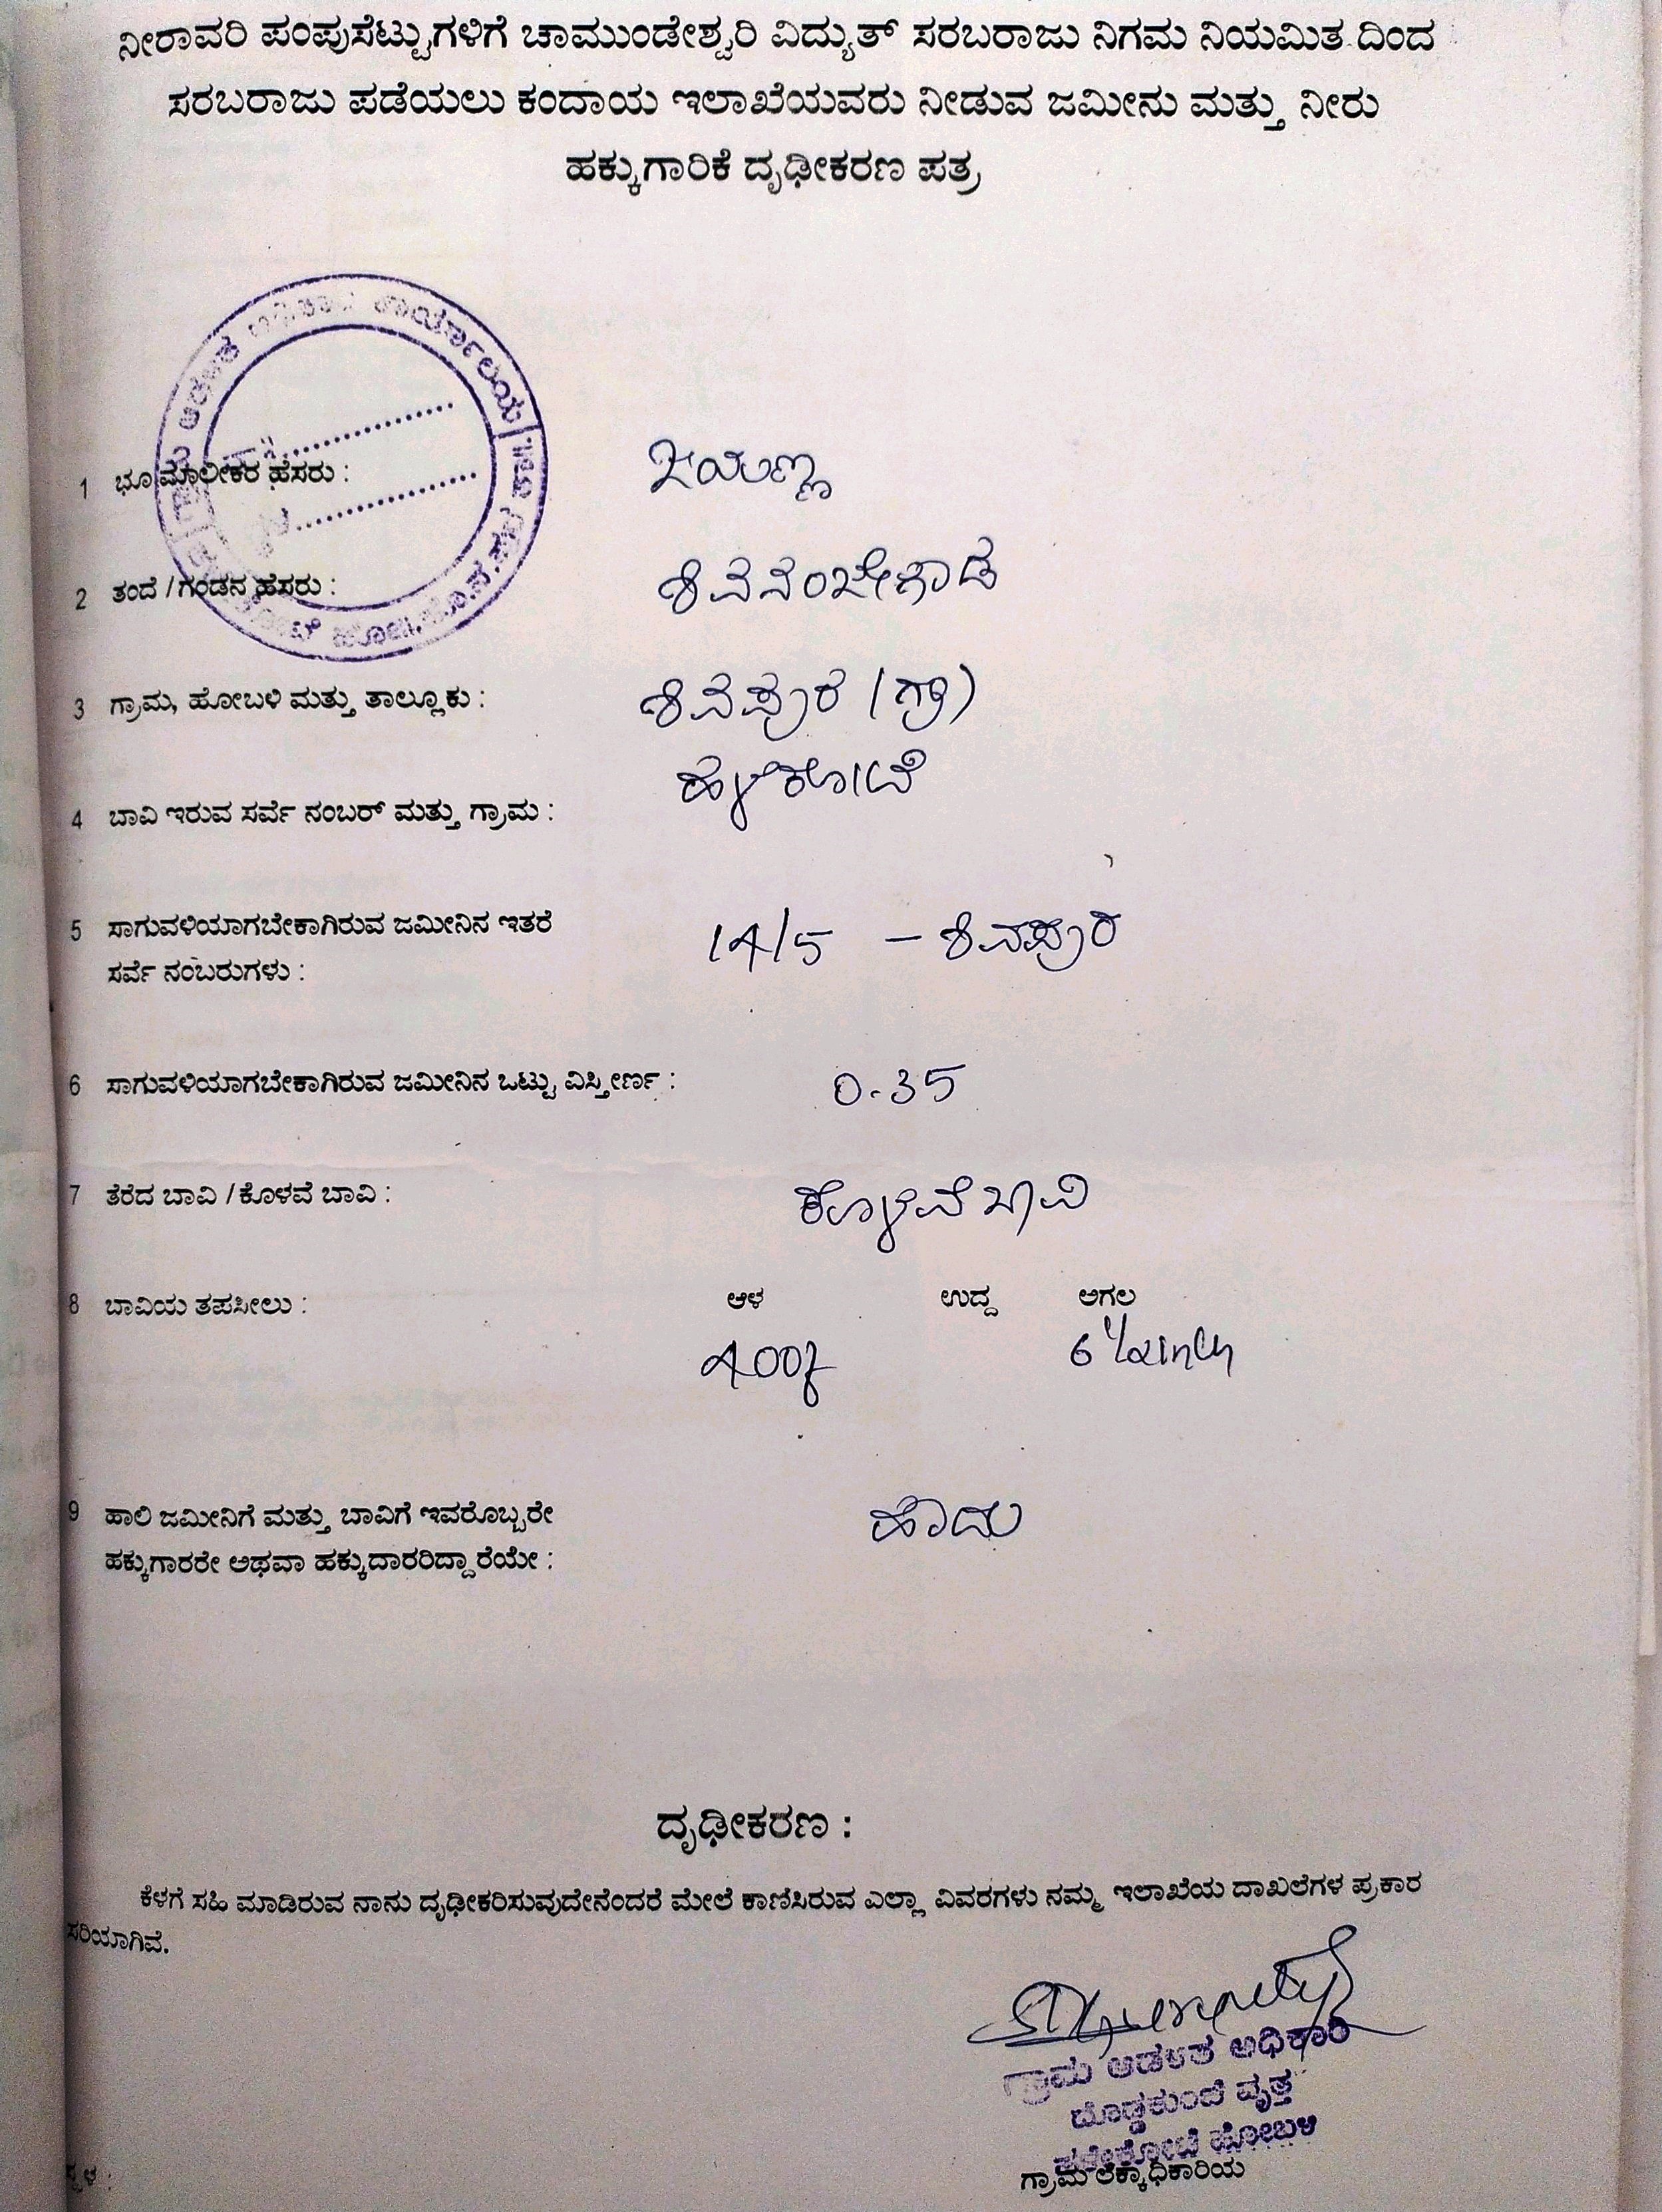 ನೀರಾವರಿ ಪಂಪುಸೆಟ್ಟುಗಳಿಗೆ ಚಾಮುಂಡೇಶ್ವರಿ ವಿದ್ಯುತ್ ಸರಬರಾಜು ನಿಗಮ ನಿಯಮಿತ ದಿಂದ
ಸರಬರಾಜು ಪಡೆಯಲು ಕಂದಾಯ ಇಲಾಖೆಯವರು ನೀಡುವ ಜಮೀನು ಮತ್ತು ನೀರು
ಹಕ್ಕುಗಾರಿಕೆ ದೃಢೀಕರಣ ಪತ್ರ
ಕಾರ್ಯಾಲಯ
1 ಭೂ ಮಾಲೀಕರ ಹೆಸರು : ಜಯಣ್ಣ
2 ತಂದೆ / ಗಂಡನ ಹೆಸರು : ಶಿವನಂಜೇಗೌಡ
3 ಗ್ರಾಮ, ಹೋಬಳಿ ಮತ್ತು ತಾಲ್ಲೂಕು : ಶಿವಪುರ (ಗ್ರಾ)
ಹಳೆಕೋಟೆ
4 ಬಾವಿ ಇರುವ ಸರ್ವೆ ನಂಬರ್ ಮತ್ತು ಗ್ರಾಮ :
5 ಸಾಗುವಳಿಯಾಗಬೇಕಾಗಿರುವ ಜಮೀನಿನ ಇತರೆ
ಸರ್ವೆ ನಂಬರುಗಳು : 14/5 – ಶಿವಪುರ
6 ಸಾಗುವಳಿಯಾಗಬೇಕಾಗಿರುವ ಜಮೀನಿನ ಒಟ್ಟು ವಿಸ್ತೀರ್ಣ : 0.35
7 ತೆರೆದ ಬಾವಿ / ಕೊಳವೆ ಬಾವಿ : ಕೊಳವೆ ಬಾವಿ
8 ಬಾವಿಯ ತಪಸೀಲು : ಆಳ ಉದ್ದ ಅಗಲ
400f 6 1/2 inch
9 ಹಾಲಿ ಜಮೀನಿಗೆ ಮತ್ತು ಬಾವಿಗೆ ಇವರೊಬ್ಬರೇ
ಹಕ್ಕುಗಾರರೇ ಅಥವಾ ಹಕ್ಕುದಾರರಿದ್ದಾರೆಯೇ : ಹೌದು
ದೃಢೀಕರಣ :
ಕೆಳಗೆ ಸಹಿ ಮಾಡಿರುವ ನಾನು ದೃಢೀಕರಿಸುವುದೇನೆಂದರೆ ಮೇಲೆ ಕಾಣಿಸಿರುವ ಎಲ್ಲಾ ವಿವರಗಳು ನಮ್ಮ ಇಲಾಖೆಯ ದಾಖಲೆಗಳ ಪ್ರಕಾರ
ಸರಿಯಾಗಿವೆ.
ಗ್ರಾಮ ಆಡಳಿತ ಅಧಿಕಾರಿ
ದೊಡ್ಡಕುಂಚೆ ವೃತ್ತ
ಹಳೇಕೋಟೆ ಹೋಬಳಿ
ಗ್ರಾಮ ಲೆಕ್ಕಾಧಿಕಾರಿಯ